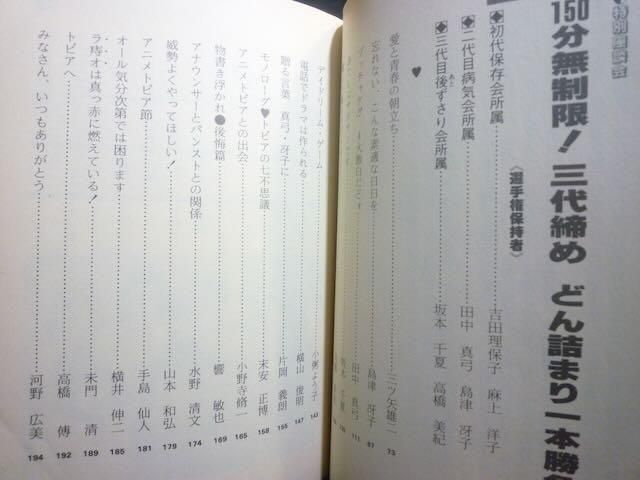 ◆特別座談会
150分無制限！三代締め どん詰まり一本勝負
〈選手権保持者〉
◆初代保存会所属 吉田理保子 麻上 洋子
◆二代目病気会所属 田中 真弓 島津 冴子
◆三代目後ずさり会所属 坂本 千夏 高橋 美紀
あと
♥
愛と青春の朝立ち 三ツ矢雄二 73
忘れない、こんな素適な日日を 島津 冴子 87
田中 真弓 111
デイドリーム・ゲーム 143
電話でドラマは作られる 横山 俊明 147
贈る言葉 真弓・冴子に 片岡 義朗 155
モノローグ♥トピアの七不思議 末安 正博 158
アニメトピアとの出会 小野寺脩一 165
物書き浮かれ●後悔篇 響 敏也 169
アナウンサーとパンストとの関係 水野 清文 174
威勢よくやってほしい！ 山本 和弘 179
アニメトピア節 手島 仙人 181
オール気分次第では困ります 横井 伸二 185
ラ痔オは真っ赤に燃えている！ 未門 清 189
トピアへ 高橋 傳 192
みなさん、いつもありがとう 河野 広美 194